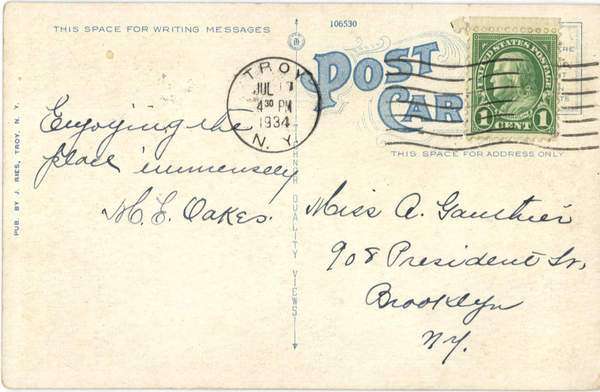 THIS SPACE FOR WRITING MESSAGES
106530
POST
CAR
TROY
JUL 17
4 30 PM
1934
N.Y.
UNITED STATES POSTAGE
1 CENT 1
THIS SPACE FOR ADDRESS ONLY
Enjoying the
place immensely
M. E. Oakes.
Miss A. Gauthier
908 President St,
Brooklyn
N.Y.
PUB. BY J. RIES, TROY, N. Y.
QUALITY VIEWS